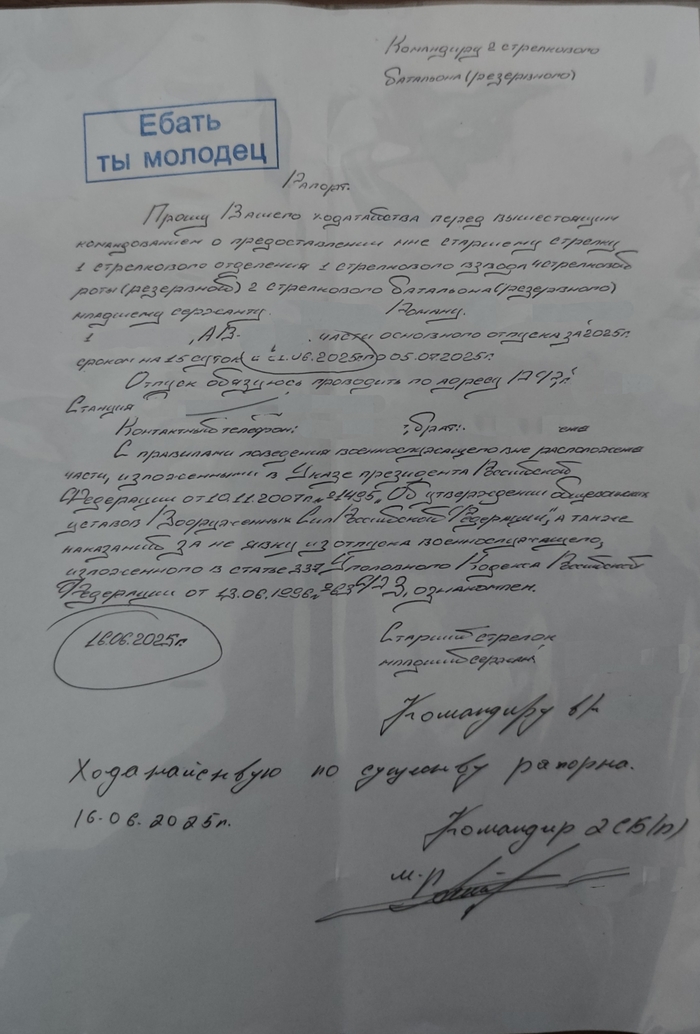 Командиру 2 стрелкового
батальона (резервного)
Ебать
ты молодец
Рапорт.
Прошу Вашего ходатайства перед вышестоящим
командованием о предоставлении мне старшему стрелку
1 стрелкового отделения 1 стрелкового взвода 4 стрелковой
роты (резервной) 2 стрелкового батальона (резервного)
младшему сержанту Роману
1 , А.В. части основного отпуска за 2025г
сроком на 15 суток с 21.06.2025г по 05.07.2025г.
Отпуск обязуюсь проводить по адресу
Станция
Контактный телефон: брат:
С правилами поведения военнослужащего вне расположения
части, изложенными в Указе президента Российской
Федерации от 10.11.2007г. №1495 „Об утверждении общевоинских
уставов Вооруженных Сил Российской Федерации", а также
наказаний за не явку из отпуска военнослужащего,
изложенного в статье 337 Уголовного Кодекса Российской
Федерации от 13.06.1996г. №63 ФЗ, ознакомлен.
16.06.2025г.
Старший стрелок
младший сержант
Командиру в/ч
Ходатайствую по существу рапорта.
16.06.2025г.
Командир 2 СБ(р)
м-р